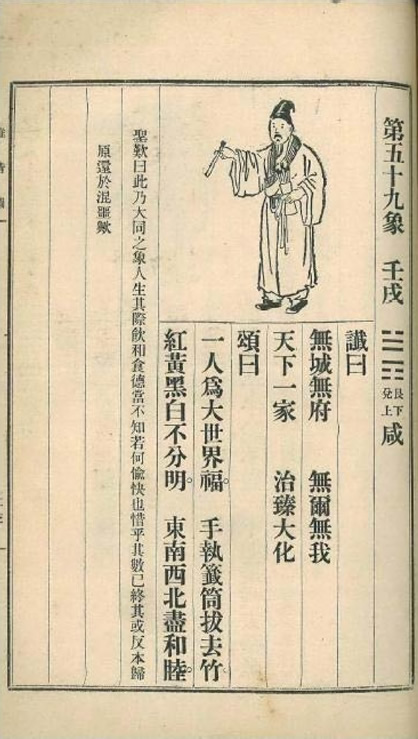 第五十九象　壬戌　艮下兌上　咸
讖曰
無城無府　無爾無我
天下一家　治臻大化
頌曰
一人爲大世界福。手執籤筒拔去竹。
紅黃黑白不分明。東南西北盡和睦。
聖歎曰此乃大同之象人生其際飲和食德當不知若何愉快也惜乎其數已終其或反本歸
原還於混噩歟